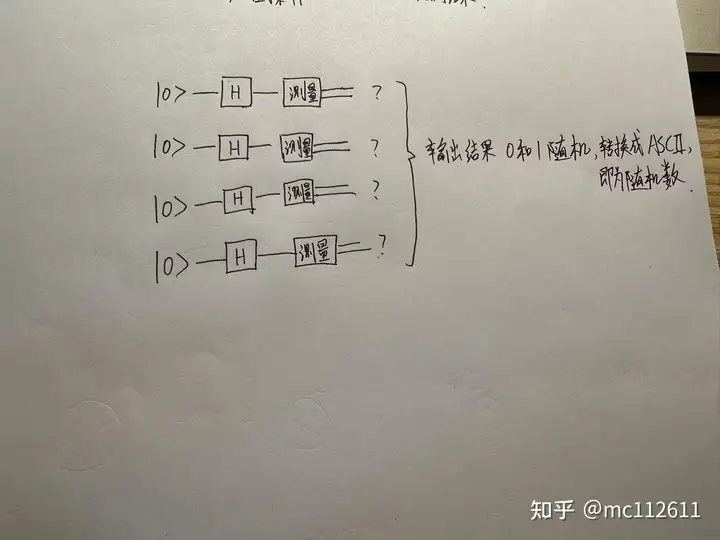 |0> H 测量 ?
|0> H 测量 ?
|0> H 测量 ?
|0> H 测量 ?
输出结果 0和1随机,转换成ASCII,
即为随机数.
知乎 @mc112611